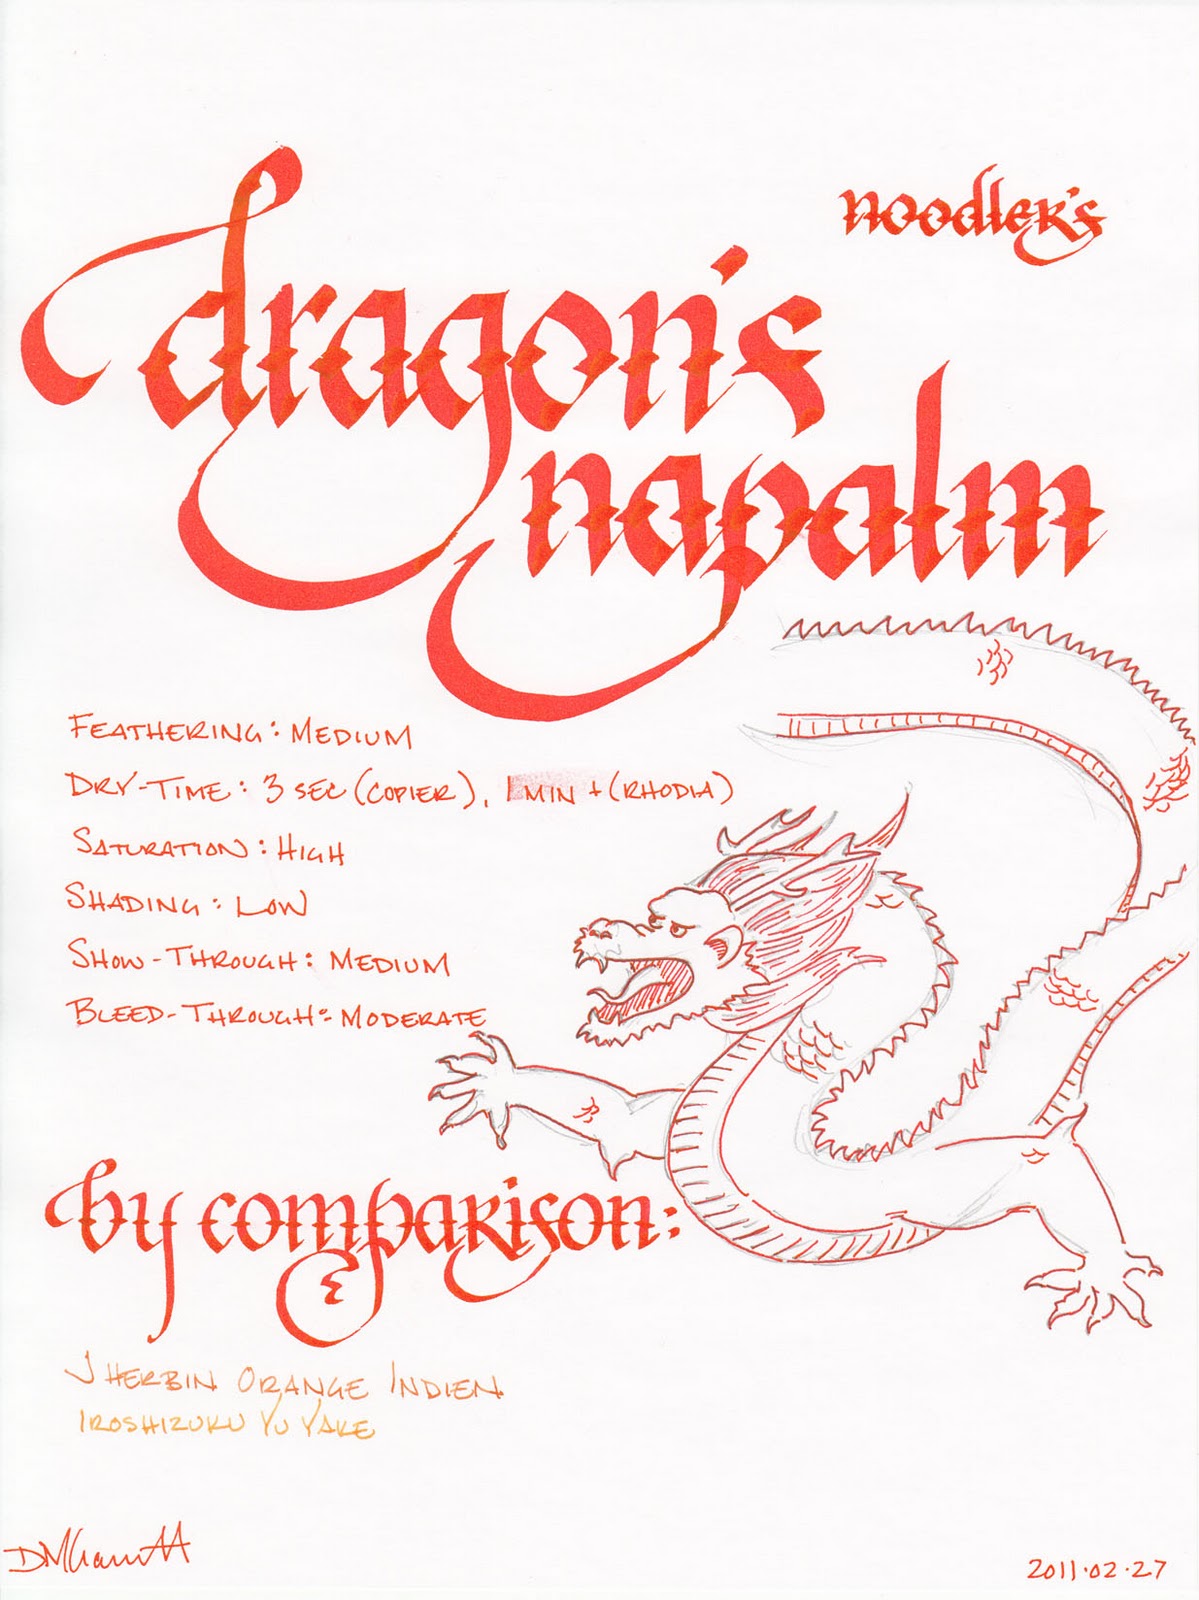 noodler's
dragon's
napalm
FEATHERING: MEDIUM
DRY-TIME: 3 SEC (COPIER), 1 MIN + (RHODIA)
SATURATION: HIGH
SHADING: LOW
SHOW-THROUGH: MEDIUM
BLEED-THROUGH: MODERATE
by comparison:
J HERBIN ORANGE INDIEN
IROSHIZUKU YU YAKE
2011.02.27